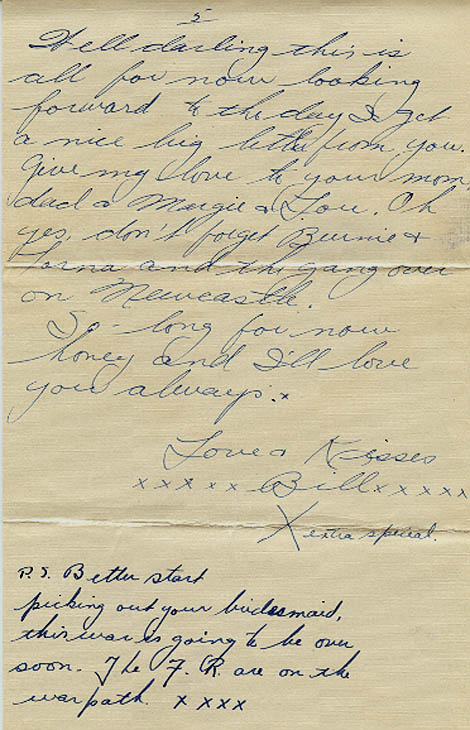 5
Well darling this is
all for now looking
forward to the day I get
a nice big letter from you.
Give my love to your mom,
dad & Margie & Lou. Oh
yes, don't forget Bernie &
Lorna and the gang over
on Newcastle.
So-long for now
honey and I'll love
you always. x
Love & Kisses
x x x x x Bill x x x x x
X extra special.
P.S. Better start
picking out your bridesmaid,
this war is going to be over
soon. The F. R. are on the
war path. x x x x